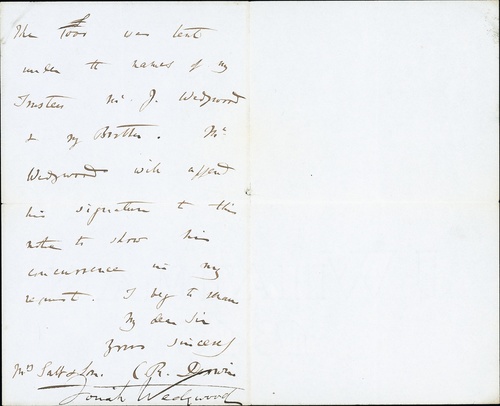 The £700 was lent
under the names of my
Trustees Mr. J. Wedgwood
& my Brother. Mr.
Wedgwood will append
his signature to this
note to show his
concurrence in my
request. I beg to remain
My dear Sir
Yours sincerely
C. R. Darwin
Mrs Salt & Son.
Josiah Wedgwood